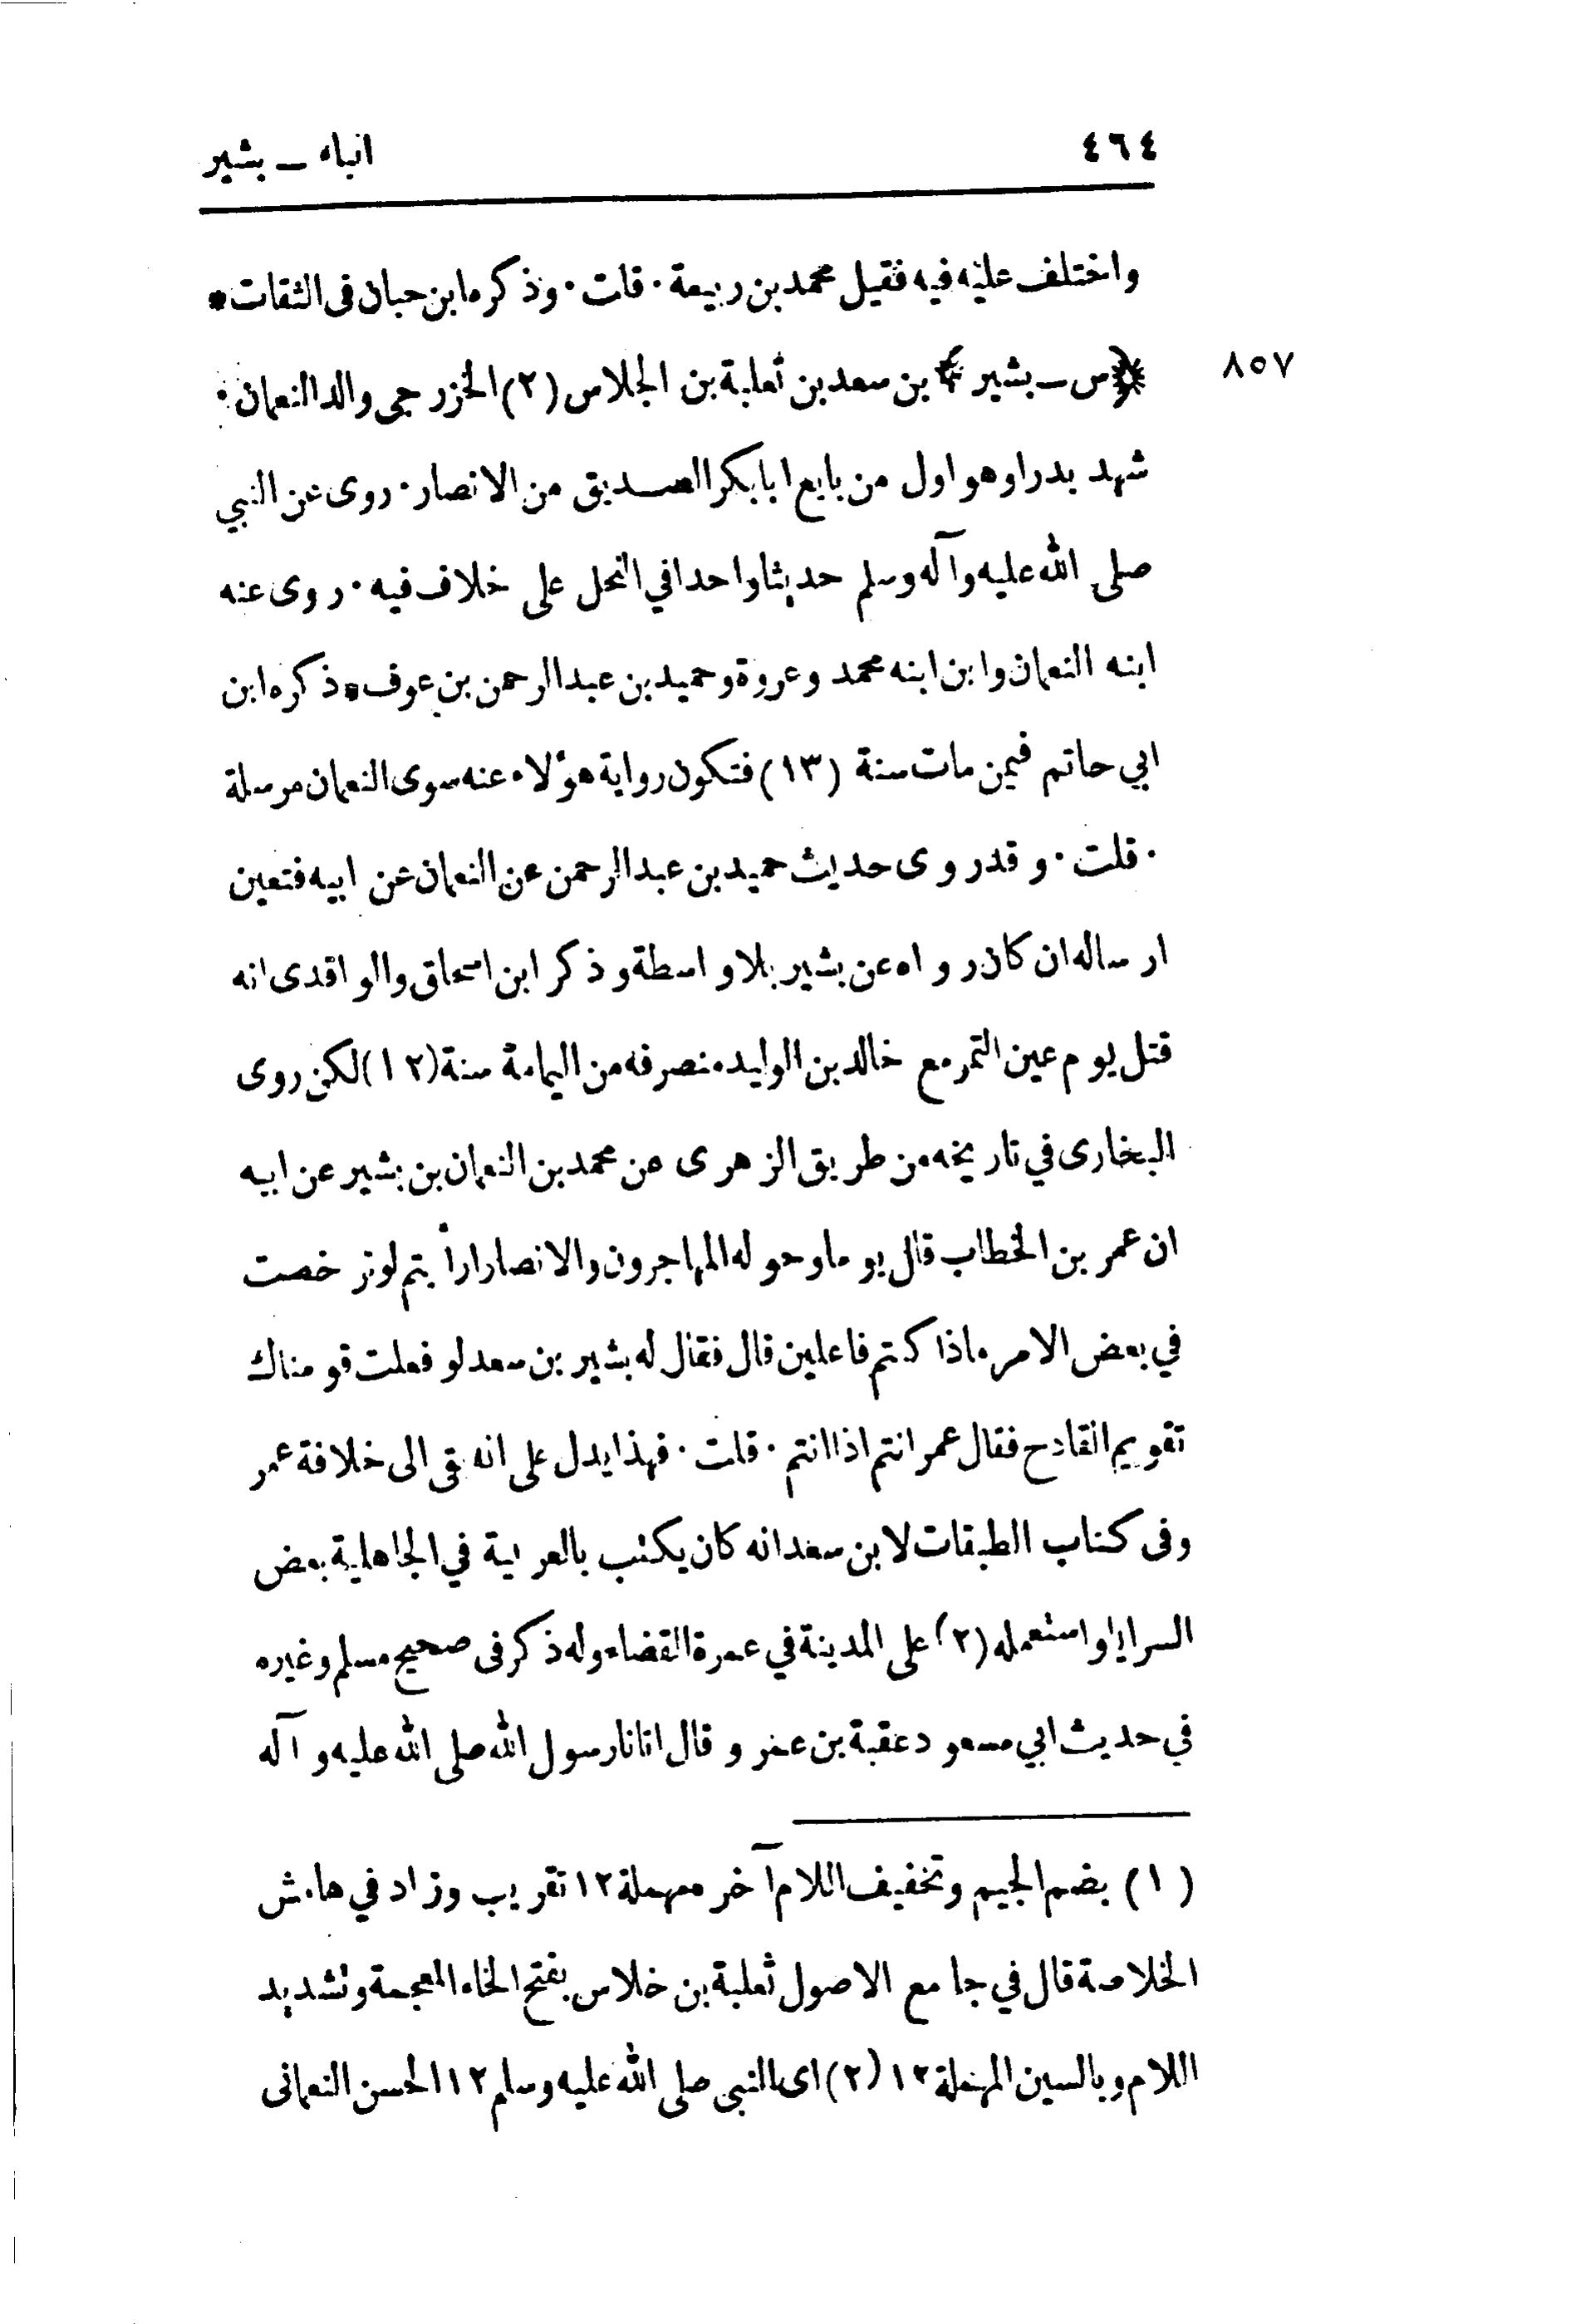 ٤٦٤
انباء ــ بشير
واختلف عليه فيه فقيل محمد بن ربيعة · قلت · وذكره ابن حبان فى الثقات *
٨٥٧
﴿ س ــ بشير ﴾ بن سعد بن ثعلبة بن الجلاس (٢) الخزرجى والد النعمان ·
شهد بدرا وهو اول من بايع ابا بكر الصديق من الانصار · روى عن النبي
صلى الله عليه وآله وسلم حديثا واحدا في النحل على خلاف فيه · روى عنه
ابنه النعمان وابن ابنه محمد وعروة وحميد بن عبد الرحمن بن عوف * ذكره ابن
ابي حاتم فيمن مات سنة (١٣) فتكون رواية هؤلاء عنه سوى النعمان مرسلة
· قلت · وقد روى حديث حميد بن عبد الرحمن عن النعمان عن ابيه فتعين
ارساله ان كان رواه عن بشير بلا واسطة وذكر ابن اسحاق والواقدى انه
قتل يوم عين التمر مع خالد بن الوليد منصرفه من اليمامة سنة (١٢) لكن روى
البخارى في تاريخه من طريق الزهرى عن محمد بن النعمان بن بشير عن ابيه
ان عمر بن الخطاب قال يوما وحوله المهاجرون والانصار ارأيتم لو ترخصت
في بعض الامر ماذا كنتم فاعلين قال فقال له بشير بن سعد لو فعلت قومناك
تقويم القادح فقال عمر انتم اذا انتم · قلت · فهذا يدل على انه بقى الى خلافة عمر
وفى كتاب الطبقات لابن سعد انه كان يكتب بالعربية في الجاهلية بعض
السرايا واستعمله (٢) على المدينة في عمرة القضاء وله ذكر فى صحيح مسلم وغيره
في حديث ابي مسعود عقبة بن عمرو قال اتانا رسول الله صلى الله عليه وآله
(١) بضم الجيم وتخفيف اللام آخر مهملة ١٢ تقريب وزاد في هامش
الخلاصة قال في جامع الاصول ثعلبة بن خلاس بفتح الخاء المعجمة وتشديد
اللام وبالسين المهملة ١٢ (٢) اى النبى صلى الله عليه وسلم ١٢ الحسن النعمانى